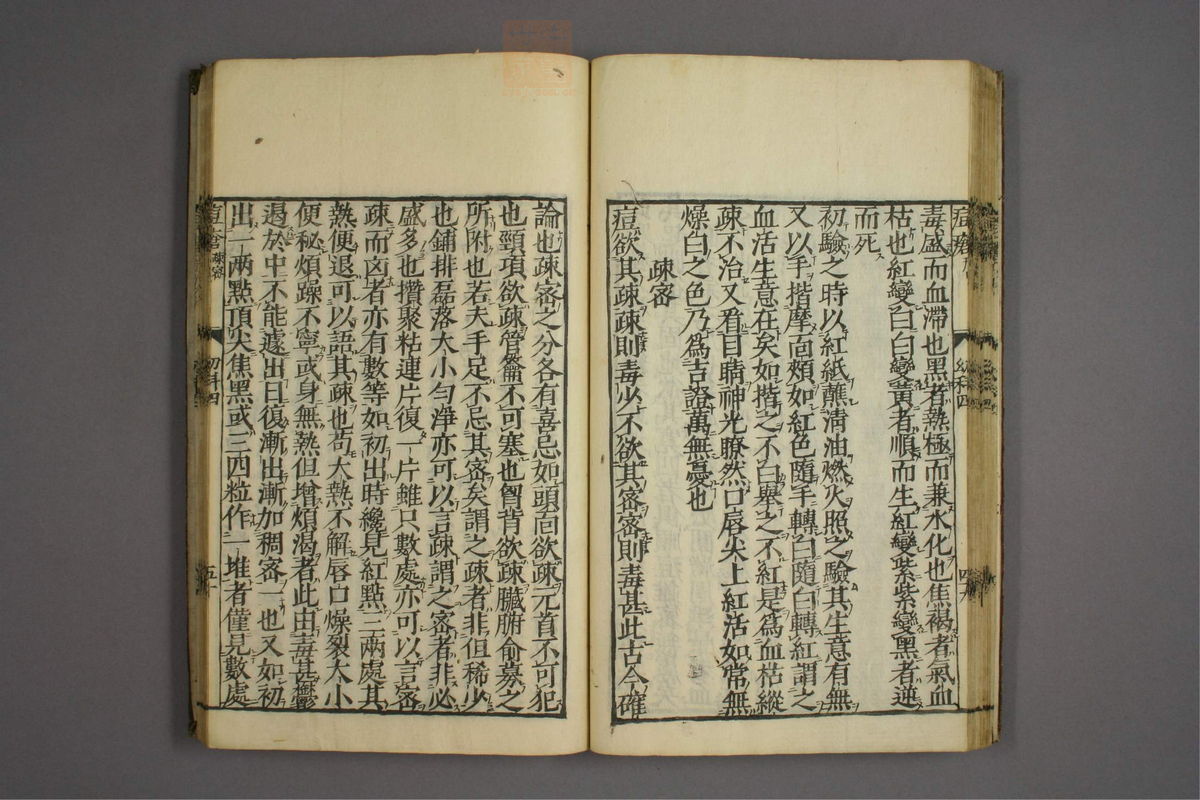 毒盛而血滯也黑者熱極而兼水化也焦褐者氣血
枯也紅變白白變黃者順而生紅變紫紫變黑者逆
而死
初驗之時以紅紙蘸清油燃火照之驗其生意有無
又以手揩摩面頰如紅色隨手轉白隨白轉紅謂之
血活生意在矣如揩之不白舉之不紅是為血枯縱
疎不治又看目睛神光瞭然口唇尖上紅活如常無
燥白之色乃為吉證萬無憂也
疎密
痘欲其疎疎則毒必不欲其密密則毒甚此古今確
論也疎密之分各有喜忌如頭面欲疎元首不可犯
也頸項欲疎管籥不可塞也胷背欲疎臟腑俞募之
所附也若夫手足不忌其密矣謂之疎者非但稀少
也鋪排磊落大小勻淨亦可以言疎謂之密者非必
盛多也攢聚粘連片復一片雖只數處亦可以言密
疎而凶者亦有數等如初出時纔見紅點三兩處其
熱便退可以語其疎也苟大熱不解唇口燥裂大小
便秘煩躁不寧或身無熱但增煩渴者此由毒甚鬱
遏於中不能遽出日復漸出漸加稠密一也又如初
出一兩點頂尖焦黑或三四粒作一堆者僅見數處
疎密
幼科四
五十